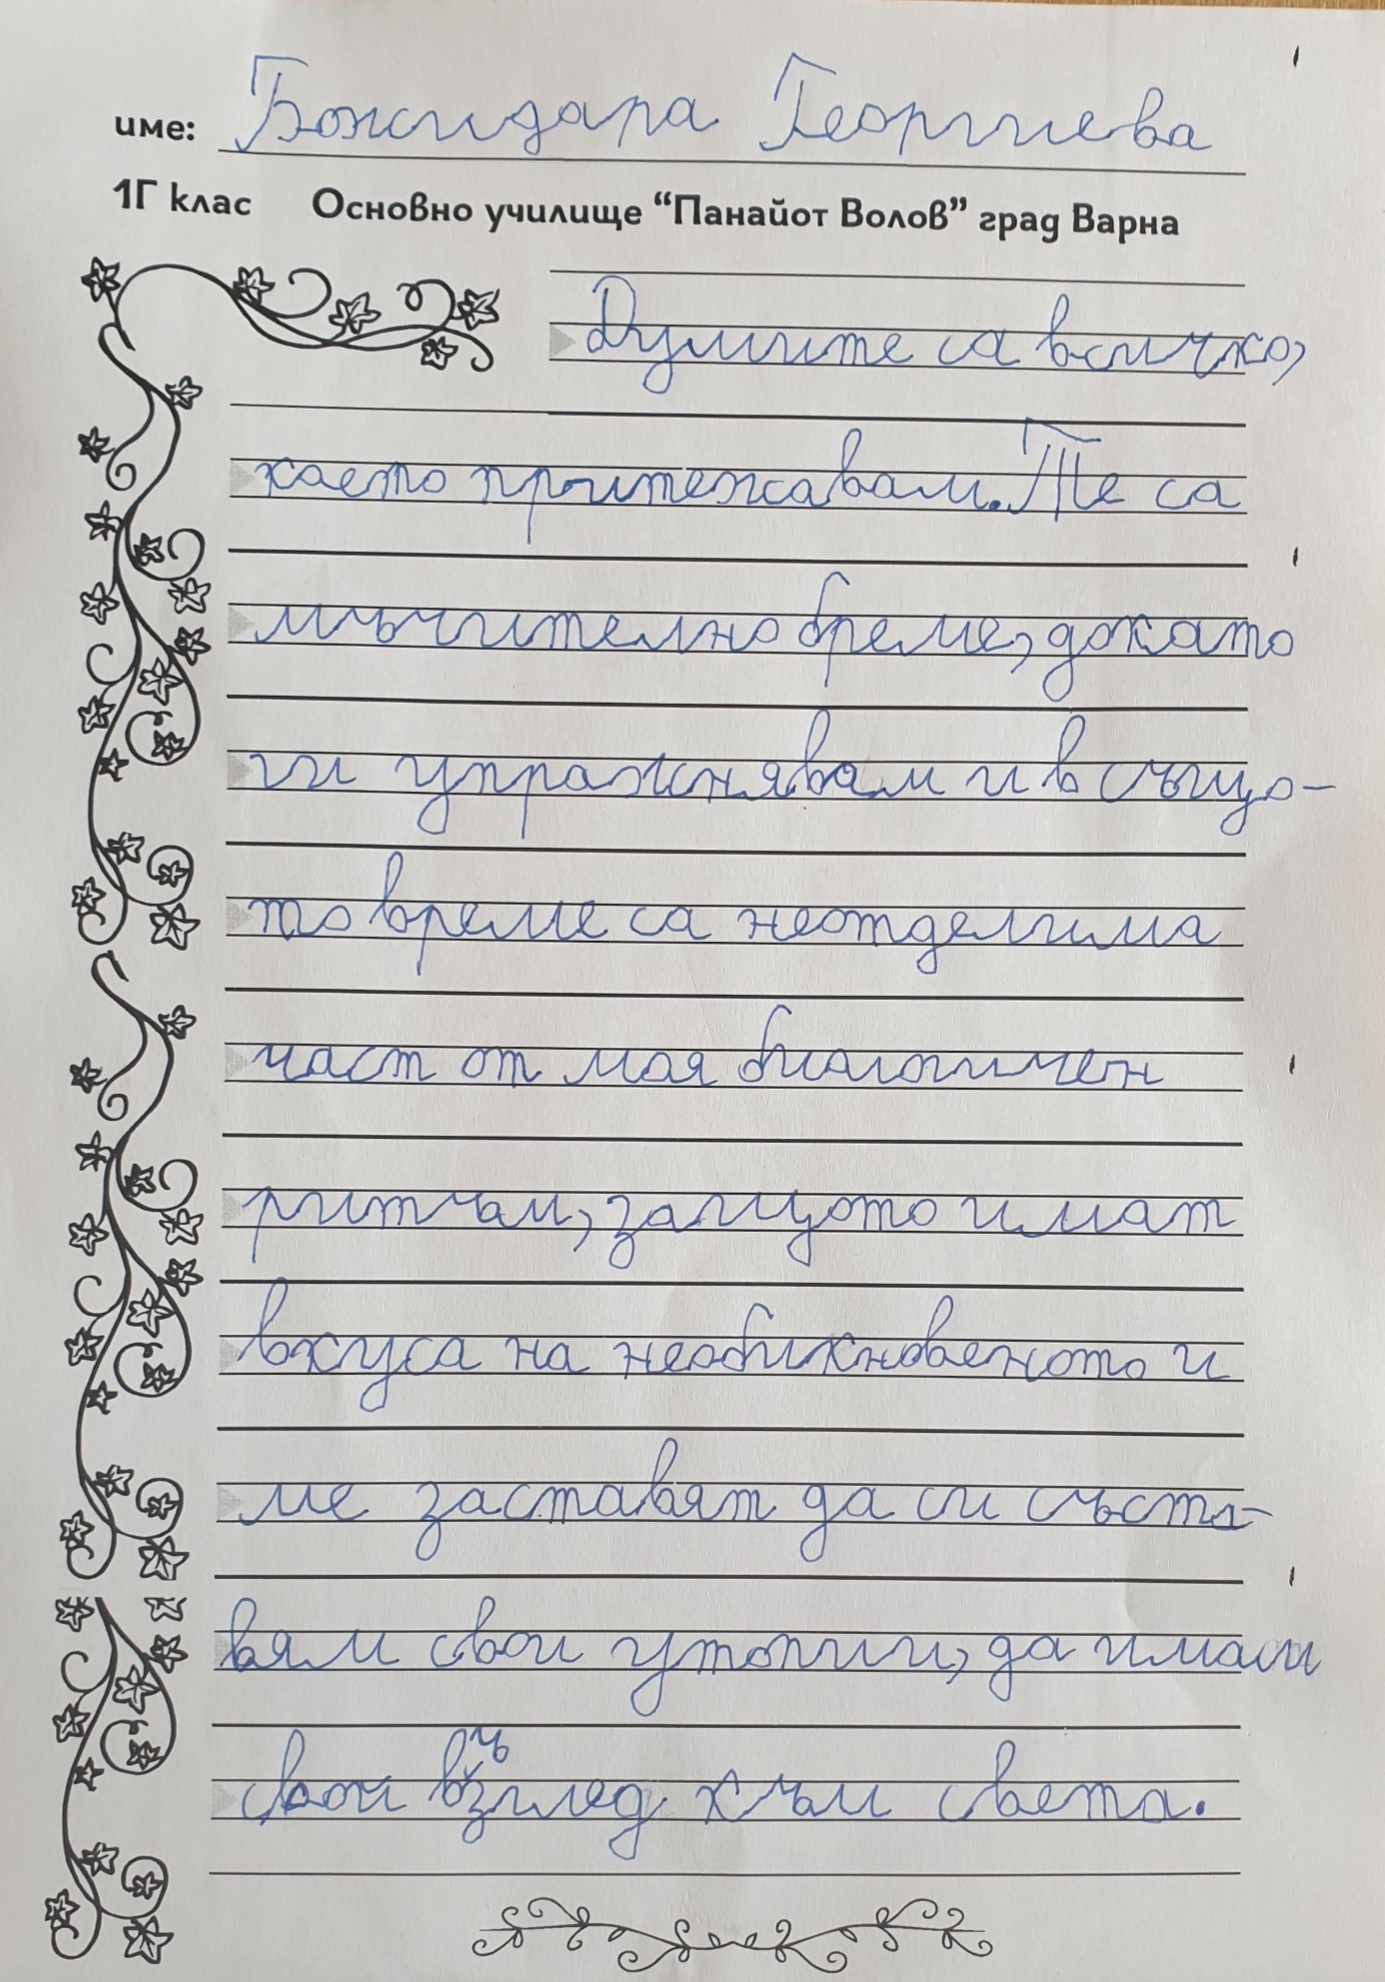 име: Божидара Георгиева
1Г клас Основно училище “Панайот Волов” град Варна
Думите са всичко,
каето притежавам. Те са
мъчително бреме, докато
ги упражнявам и в също-
то време са неотделима
част от моя биологичен
ритъм, защото имат
вкуса на необикновеното и
ме заставят да си съста-
вям свои утопии, да имам
свой възглед към света.